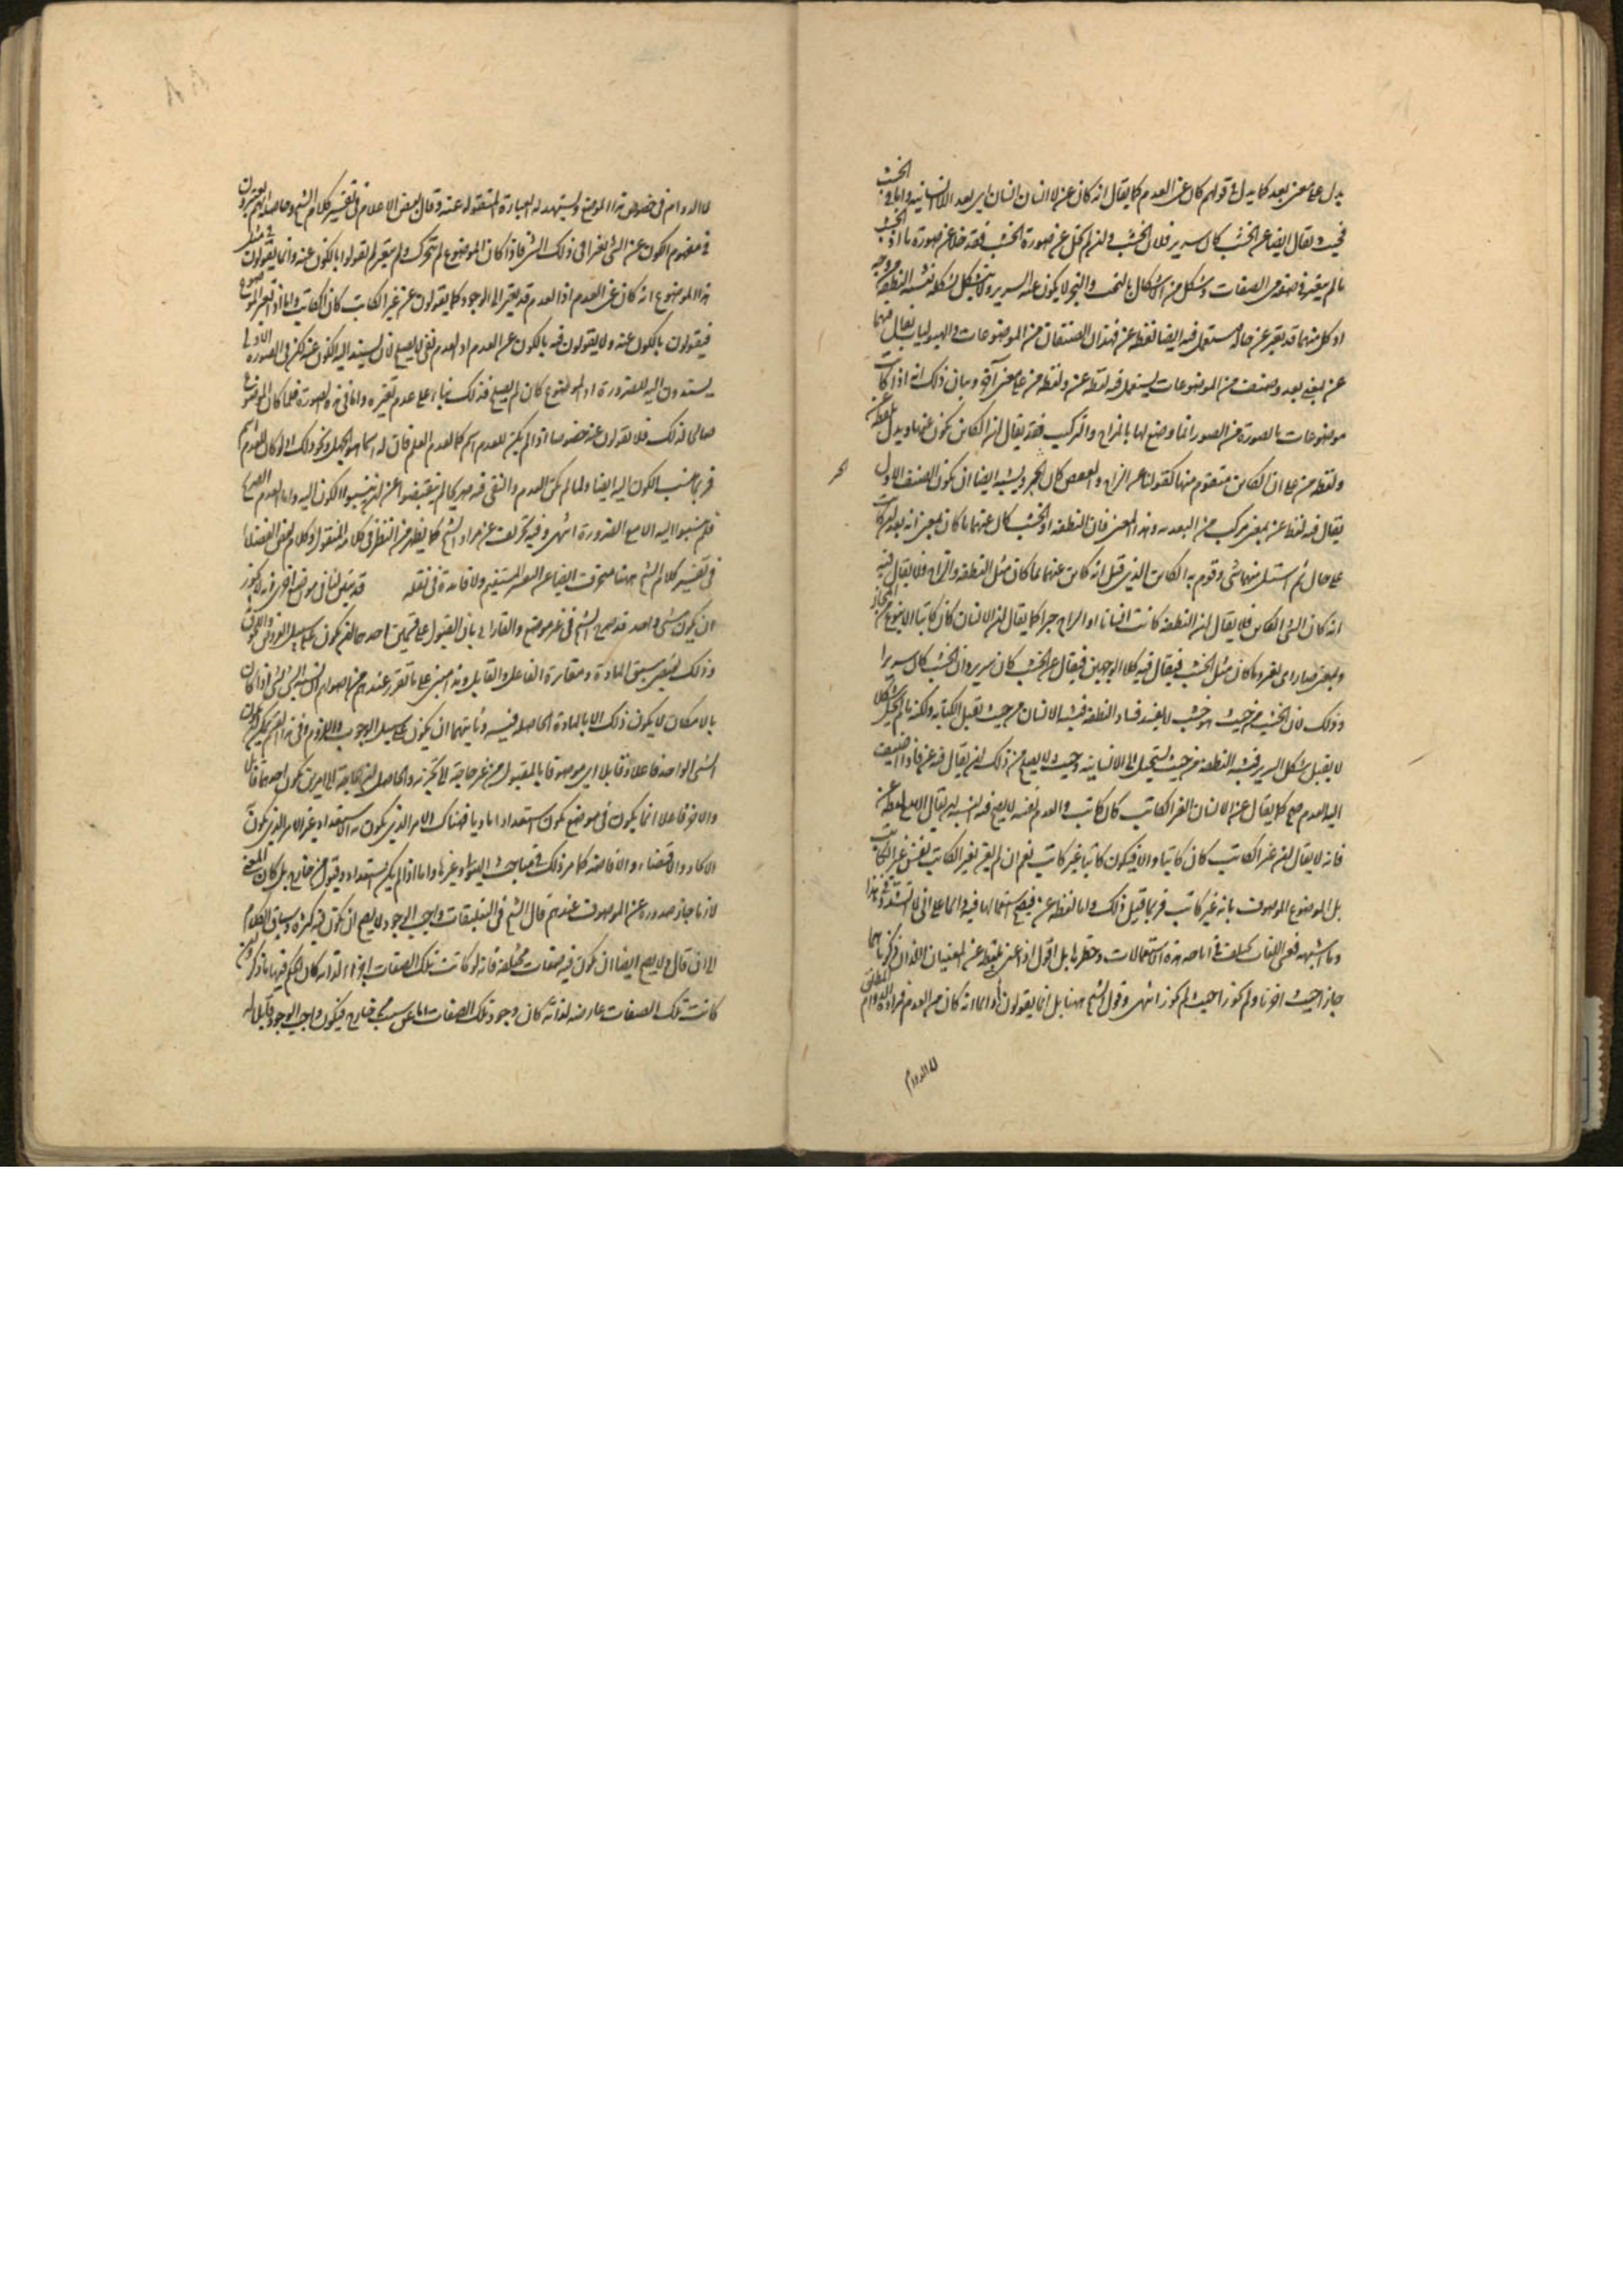 يدل على معنى بعد كما يدل في قولهم كان عن العدم كما يقال انه كان عن لا انسان انسان اي بعد اللاانسانية واما في الخشب
فحيث يقال ايضا عن الخشب كان سرير فلان الخشب وان لم يخل عن صورة الخشب فقد خلا عن صورة ما اذ الخشب
ما لم يتغير في صفة من الصفات وشكل من الاشكال بالنحت والنجر لا يكون عنه السرير ولا يتشكل بشكله فيشبه النطفة من وجه
اذ كل منهما قد تغير عن حاله فيستعمل فيه ايضا لفظة عن فهذان الصنفان من الموضوعات والهيوليات يقال فيهما
عن بمعنى بعد وصنف من الموضوعات يستعمل فيه لفظة عن ولفظة من على معنى آخر وبيان ذلك انه اذا كانت
موضوعات ما لصورة من الصور انما وضع لها بالمزاج والتركيب فقد يقال ان الكائن يكون عنها ويدل بلفظة عن
ولفظة من على ان الكائن متقوم منها كقولنا عن الزاج والعفص كان الحبر ويشبه ايضا ان يكون الصنف الاول
يقال فيه لفظة عن بمعنى مركب من البعدية وهذا المعنى فان النطفة او الخشب كان عنهما ما كان بمعنى انه بعد ان كانت
على حال ثم استل منهما شيء وقوم به الكائن الذي قيل انه كائن عنهما فما كان مثل النطفة والزاج فلا يقال فيه
انه كان الشيء الكائن فلا يقال ان النطفة كانت انسانا او الزاج حبرا كما يقال ان الانسان كان كاتبا الا بنوع من المجاز
وبمعنى صار اي تغير وما كان مثل الخشب فيقال فيه كلا الوجهين فيقال عن الخشب كان سرير وان الخشب كان سريرا
وذلك لان الخشب من حيث هو خشب لا يفسد فساد النطفة فيشبه الانسان من حيث يقبل الكتابة ولكنه ما لم يخل شكلا
لا يقبل شكل السرير فيشبه النطفة من حيث تستحيل الى الانسانية وحيث لا يصح من ذلك ان يقال فيه عن فاذا اضيف
اليه العدم صح كما يقال عن الانسان الغير الكاتب كان كاتب والعدم نفسه لا يصح فيه البتة ان يقال الا مع لفظة عن
فانه لا يقال ان غير الكاتب كان كاتبا والا فيكون كاتبا غير كاتب نعم ان لم يعن بغير الكاتب نفس غير الكاتب
بل الموضوع الموصوف بانه غير كاتب فربما قيل ذلك واما لفظة عن فيصح استعمالها فيه دائما على اني لا اتشدد في هذا
وما اشبهه فعسى اللغات تختلف في اباحة هذه الاستعمالات وحظرها بل اقول اذا عنى بلفظة عن المعنيان اللذان ذكرناهما
جاز حيث اجزنا ولم يجوز حيث لم يجوز انتهى وقول الشيخ ههنا بل انما يقولون دائما انه كان عن العدم فمراده الدوام المطلق
لا الدوام
لا الدوام في خصوص هذا الموضع ويستشهد له العبارة المنقولة عنه وقال بعض الاعلام في تفسير كلام الشيخ وحاصله انهم يعتبرون
في مفهوم الكون عن الشيء تغيرا في ذلك الشيء فاذا كان الموضوع لم يتحرك ولم يتغير لم يقولوا بالكون عنه وانما يقولون في مثل
هذا الموضوع انه كان عن العدم اذ العدم قد تغير الى الوجود كما يقولون عن غير الكاتب كان الكاتب واما اذا تغير الموضوع
فيقولون بالكون عنه ولا يقولون فيه بالكون عن العدم اذ العدم نفي لا يصلح لان يستند اليه الكون عنه لكن في الصورة الاولى
يسندون اليه للضرورة اذ الموضوع كان لم يصلح لذلك بناء على عدم تغيره واما في هذه الصورة فلما كان الموضوع
صالحا لذلك فلا يقولون عنه خصوصا اذا لم يكن للعدم اسم كما لعدم العلم فان له اسما هو الجهل ونحو ذلك اذ لو كان للعدم اسم
فربما ينسب الكون اليه ايضا ولما لم يكن العدم والنفي فيه صريحا لم ينقبضوا عن ان ينسبوا الكون اليه واما العدم الصريح
فلم ينسبوا اليه الا مع الضرورة انتهى وفيه تحريف عن مراد الشيخ كما يظهر من النظر في كلامه المنقول وكلام بعض الفضلاء
في تفسير كلام الشيخ ههنا منحرف ايضا عن النهج المستقيم ولا فائدة في نقله قد تبين لنا في مواضع اخرى انه لا يجوز
ان يكون شيء واحد قد صرح الشيخ في غير موضع والفارابي بان القبول على قسمين احدهما ان يكون على سبيل العروض واللحوق
وذلك يقتضي سبق المادة ومغايرة الفاعل والقابل وهذا مبني على ما تقرر عندهم من اصولهم ان نسبة الشيء الى شيء اذا كان
بالامكان لا يكون ذلك الا بالمادة الحاصلة فيه وثانيهما ان يكون على سبيل الوجوب واللزوم وفي هذا القسم يمكن ان يكون
الشيء الواحد فاعلا وقابلا اي موصوفا بالمقبول من غير حاجة الى تجزئه والحاصل ان الحاجة الى امرين يكون احدهما قابلا
والآخر فاعلا انما يكون في موضع يكون استعدادا ماديا فهناك الامر الذي يكون به الاستعداد غير الامر الذي يكون
الايجاد والاقتضاء والافاضة كما مر ذلك في مباحث الهيولى وغيرها واما اذا لم يكن استعداد وقبول من خارج بل كان المعنى
لازما جاز صدوره عن الموصوف عندهم قال الشيخ في التعليقات واجب الوجود لا يصح ان يكون فيه كثرة وساق الكلام
الى ان قال ولا يصح ايضا ان يكون فيه صفات مختلفة فانه لو كانت تلك الصفات اجزاء لذاته كان الحكم فيها ما ذكر وان
كانت تلك الصفات عارضة لذاته كان وجود تلك الصفات اما عن سبب من خارج فيكون واجب الوجود قابلا له